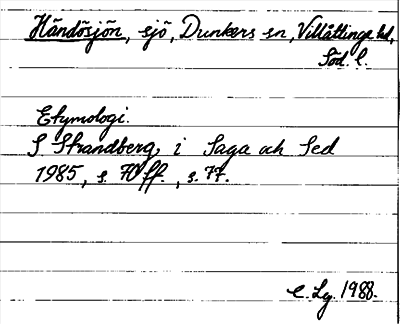 Händösjön, sjö, Dunkers sn, Villåttinge hd,
Söd. l.
Etymologi.
S Strandberg, i Saga och Sed
1985, s. 70 ff., s. 77.
C. Lg. 1988.